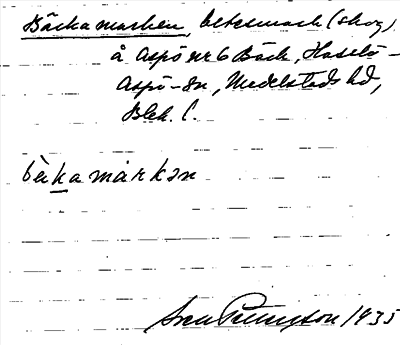 Bäckamarken, betesmark (skog)
å Aspö nr 6 Bäck, Hasslö-
Aspö-sn, Medelstads hd,
Blek. l.
bèkamárkən
1935